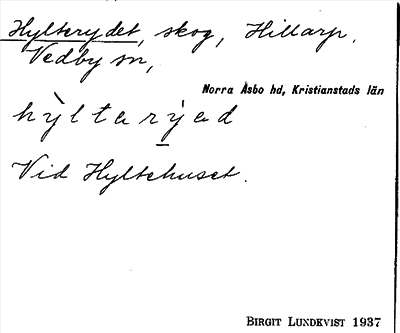 Hylterydet, skog, Hillarp,
Vedby sn,
Norra Åsbo hd, Kristianstads län
hỳlterýed
Vid Hyltehuset.
BIRGIT LUNDKVIST 1937